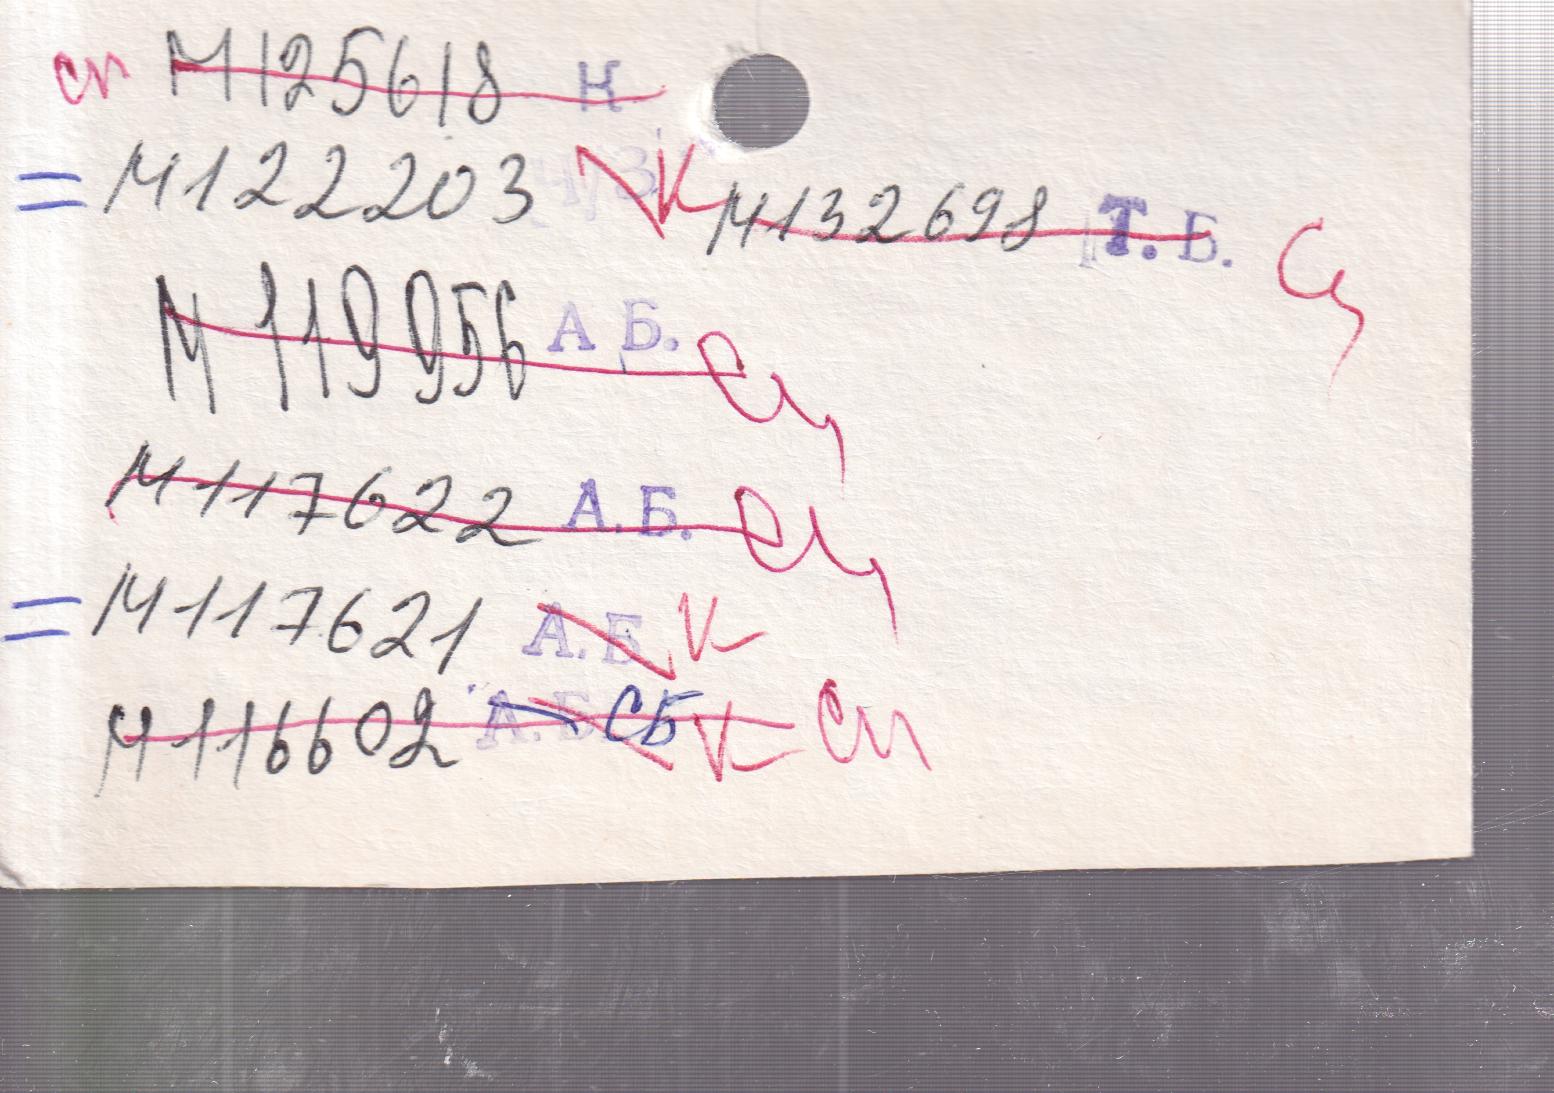 сп М125618 К
= М122203 Ч/З К М132698 Т.Б. Сп
М119956 А Б. Сп
М117622 А.Б. Сп
= М117621 А.Б К
М116602 А.Б СБ К Сп